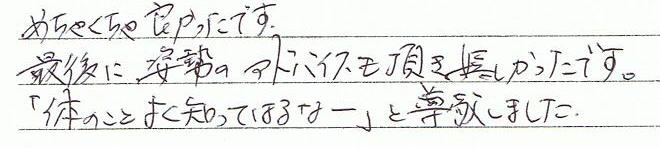 めちゃくちゃ良かったです。
最後に姿勢のアドバイスも頂き嬉しかったです。
「体のことよく知ってはるなー」と尊敬しました。